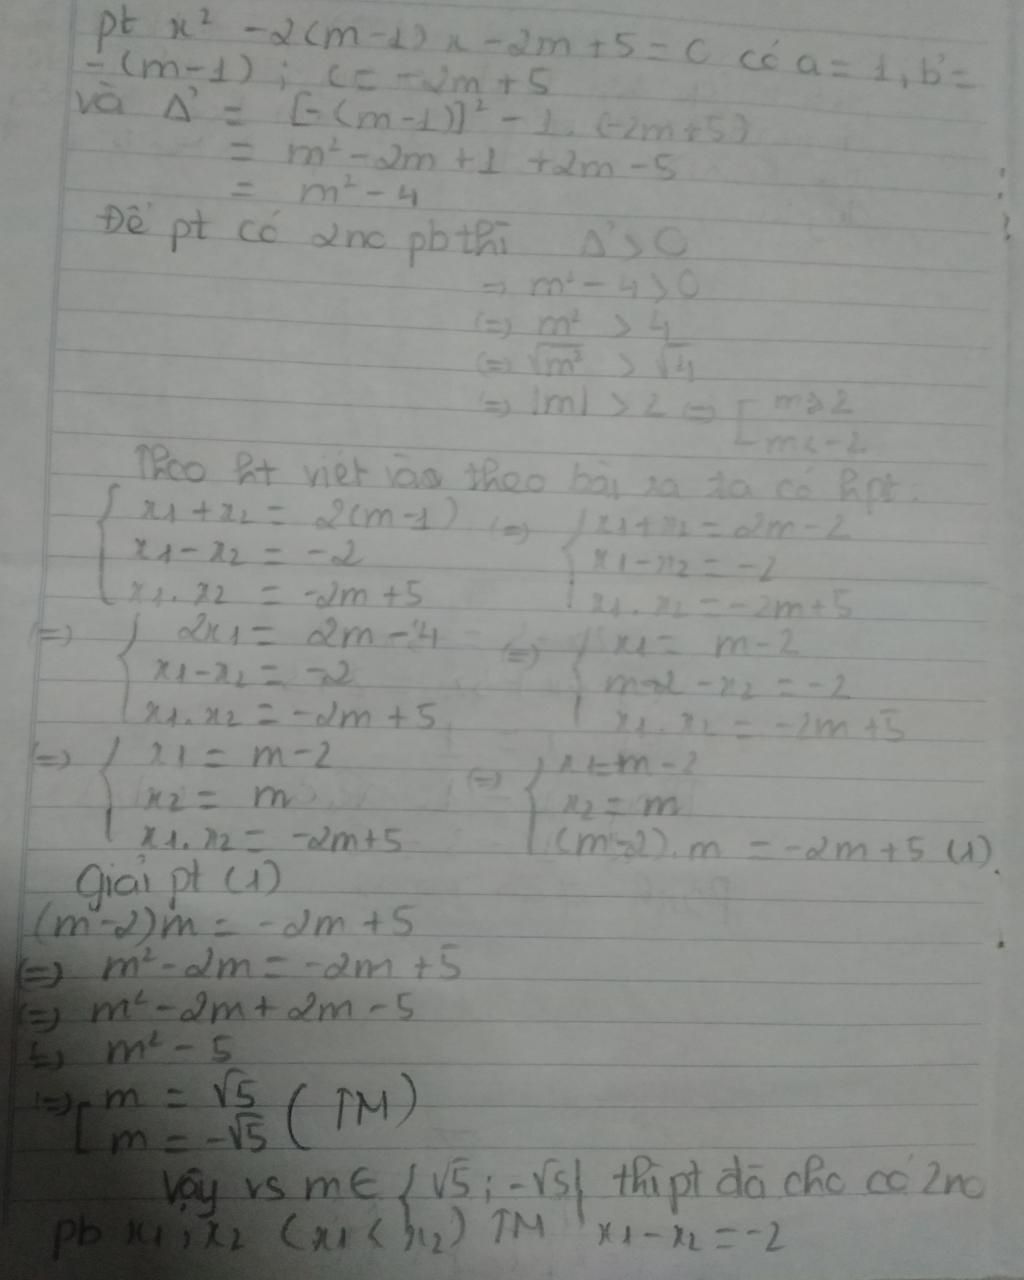 pt x² - 2(m-1)x - 2m + 5 = 0 có a = 1, b' =
- (m-1) ; c = -2m + 5
và Δ' = [-(m-1)]² - 1. (-2m+5)
= m² - 2m + 1 + 2m - 5
= m² - 4
Để pt có 2no pb thì Δ' > 0
=> m² - 4 > 0
(=) m² > 4
(=) √m² > √4
=> |m| > 2 => [ m > 2
m < -2
Theo ht viét và theo bài ra ta có hpt:
{ x1 + x2 = 2(m-1) (=) { x1 + x2 = 2m - 2
x1 - x2 = -2 x1 - x2 = -2
x1. x2 = -2m + 5 x1. x2 = -2m + 5
(=) { 2x1 = 2m - 4 (=) { x1 = m - 2
x1 - x2 = -2 m - 2 - x2 = -2
x1. x2 = -2m + 5 x1. x2 = -2m + 5
(=) { x1 = m - 2 (=) { x1 = m - 2
x2 = m x2 = m
x1. x2 = -2m + 5 (m-2). m = -2m + 5 (1)
Giải pt (1)
(m-2)m = -2m + 5
(=) m² - 2m = -2m + 5
(=) m² - 2m + 2m - 5
(=) m² - 5
(=) [ m = √5 (TM)
m = -√5
Vậy vs m ∈ {√5 ; -√5} thì pt đã cho có 2no
pb x1 ; x2 (x1 < x2) TM x1 - x2 = -2